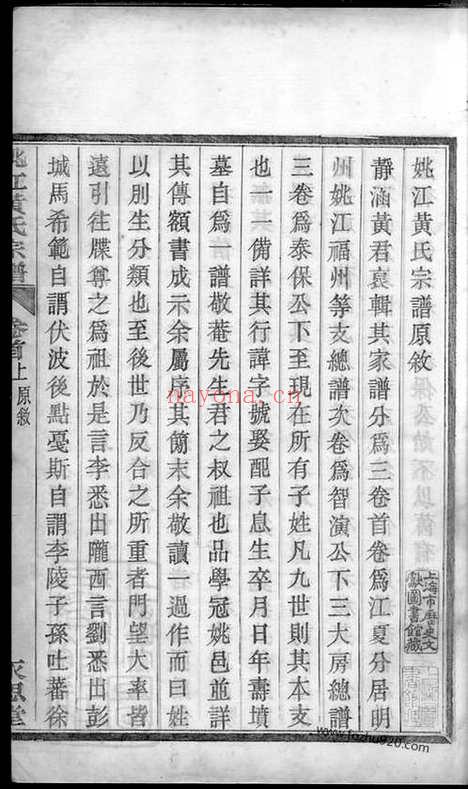 姚江黃氏宗譜原敘
靜涵黃君裒輯其家譜分爲三卷首卷爲江夏分居明
州姚江福州等支總譜次卷爲智演公下三大房總譜
三卷爲泰保公下至現在所有子姓凡九世則其本支
也一一備詳其行諱字號娶配子息生卒月日年壽墳
墓自爲一譜敬菴先生君之叔祖也品學冠姚邑並詳
其傳額書成示余屬序其簡末余敬讀一過作而曰姓
以別生分類也至後世乃反合之所重者門望大率皆
遠引往牒尊之爲祖於是言李悉出隴西言劉悉出彭
城馬希範自謂伏波後點戞斯自謂李陵子孫吐蕃徐
姚江黃氏宗譜
卷首上
原敘
上海市歷史文
獻圖書館藏
nayona.cn
www.fozhu920.com